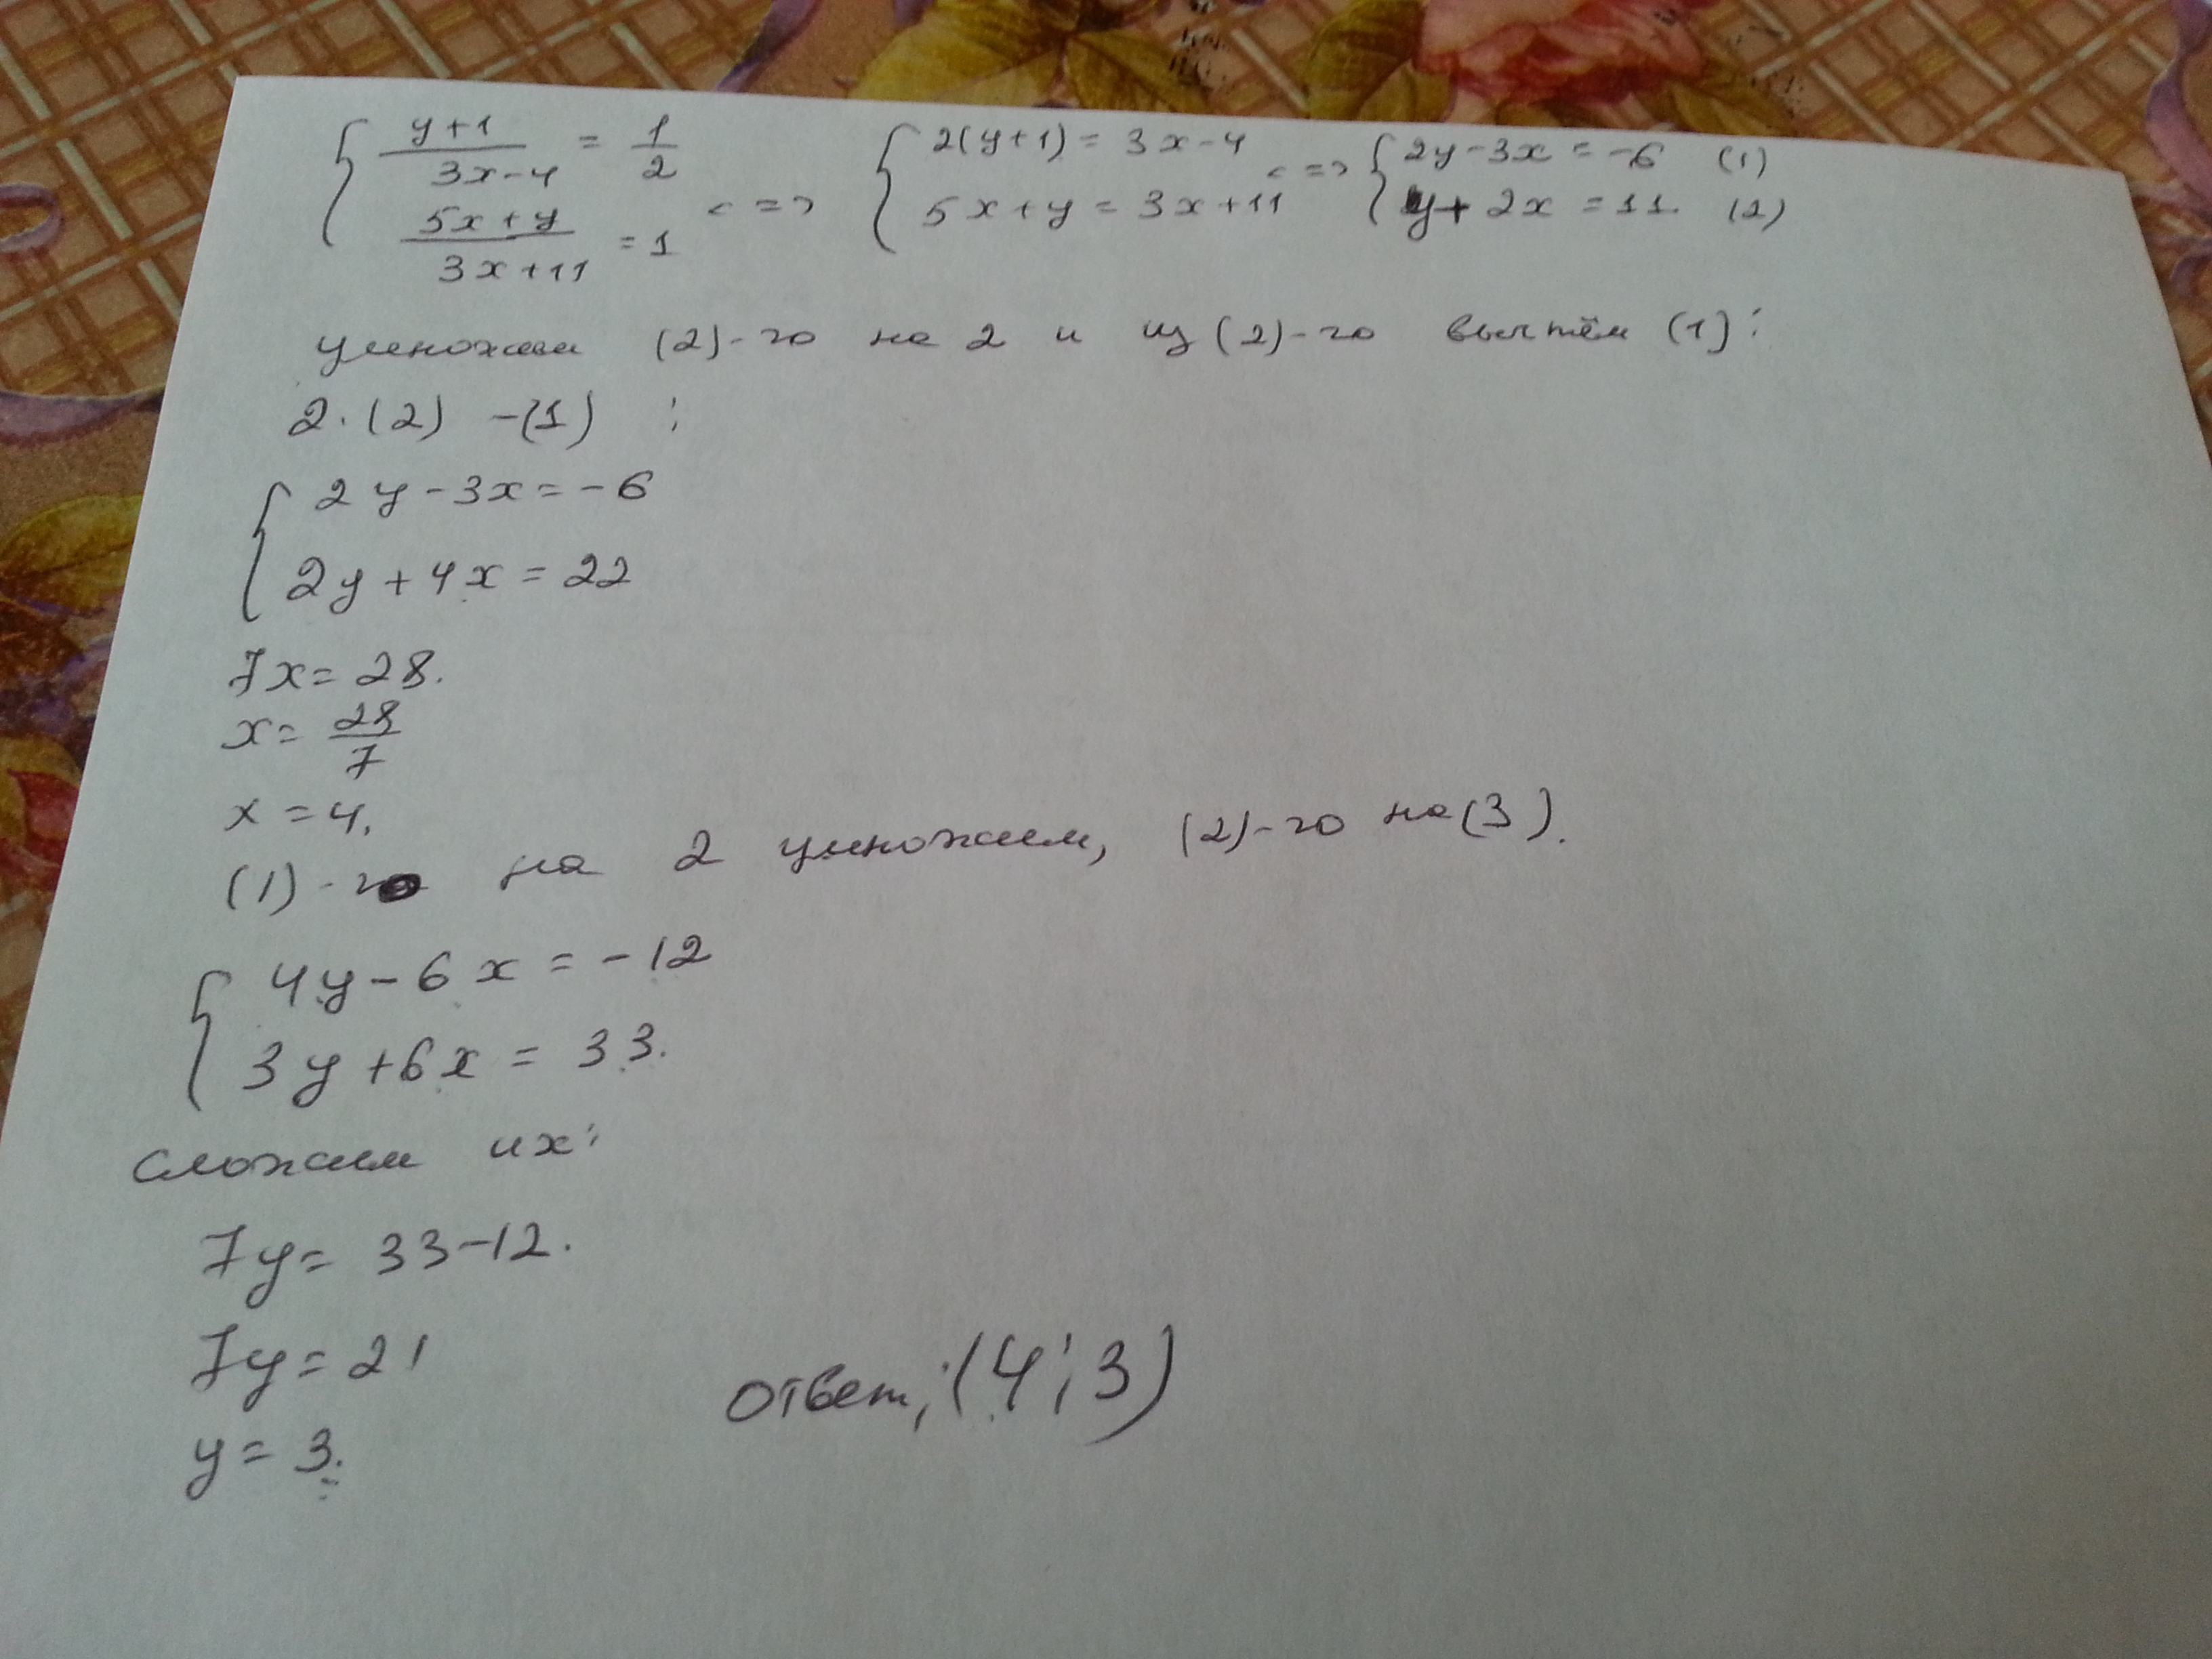 { y+1 / 3x-4 = 1/2 <=> { 2(y+1) = 3x-4 <=> { 2y-3x = -6 (1)
5x+y / 3x+11 = 1 5x+y = 3x+11 y+2x = 11. (2)
умножаем (2)-го на 2 и из (2)-го вычтём (1):
2·(2) -(1) :
{ 2y-3x=-6
2y+4x=22
7x=28.
x= 28/7
x=4.
(1)-го на 2 умножаем, (2)-го на (3).
{ 4y-6x=-12
3y+6x=33.
Сложим их:
7y= 33-12.
7y=21
y=3.
Ответ: (4;3)